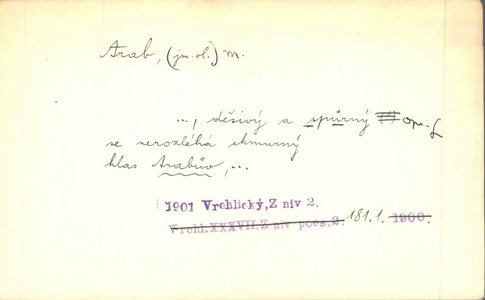 Arab, (jm. ol.) m.
..., děsivý a spurný
se nerozléhá chmurný
hlas Arabův, ...
1901 Vrchlický, Z niv 2.
Vrchl. XXXVII. Z niv poes. 2. 181.1. 1900.